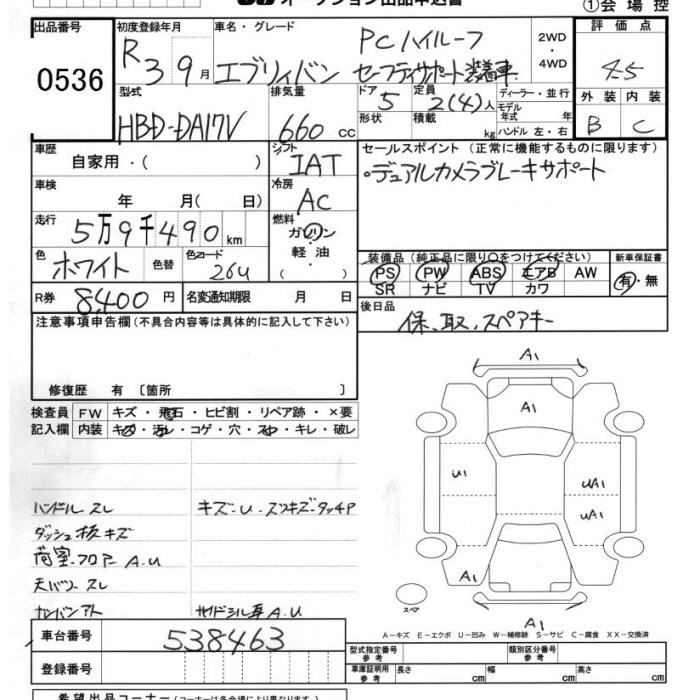 オークション出品申込書
①会場控
出品番号
0536
初度登録年月
R3 9月
車名・グレード
エブリィバン
PCハイルーフ
セーフティサポート装着車
2WD
・
4WD
評価点
4.5
外装 内装
B C
型式
HBD-DA17V
排気量
660 cc
ドア
5
定員
2(4)人
形状
積載
kg
ディーラー・並行
モデル
年式 年
ハンドル 左・右
車歴
自家用・( )
シフト
IAT
セールスポイント (正常に機能するものに限ります)
・デュアルカメラブレーキサポート
車検
年 月( 日)
冷房
AC
走行
5万9千490km
燃料
ガソリン
・
軽油
( )
色
ホワイト
色替
色コード
26U
R券
8,400円
名変通知期限 月 日
装備品 (純正品に限り○をつけてください)
PS PW ABS エアB AW
SR ナビ TV カワ
新車保証書
有・無
後日品
保、取、スペアキー
注意事項申告欄(不具合内容等は具体的に記入して下さい)
修復歴 有〔箇所 〕
検査員
記入欄
FW キズ・飛石・ヒビ割・リペア跡・×要
内装 キズ・汚レ・コゲ・穴・スレ・キレ・破レ
ハンドル スレ
キズ・U・スリキズ・タッチP
ダッシュ板 キズ
荷室・フロアー A.U
天バリ スレ
カンバンアト
サイドシル耳 A.U
A1
A1
U1
UA1
UA1
A1
A1
スペア
A-キズ E-エクボ U-凹み W-補修跡 S-サビ C-腐食 XX-交換済
車台番号
538463
登録番号
型式指定番号
参考
類別区分番号
参考
車庫証明用
参考
長さ cm
幅 cm
高さ cm
希望出品コーナー(コーナーは各会場により異なります)